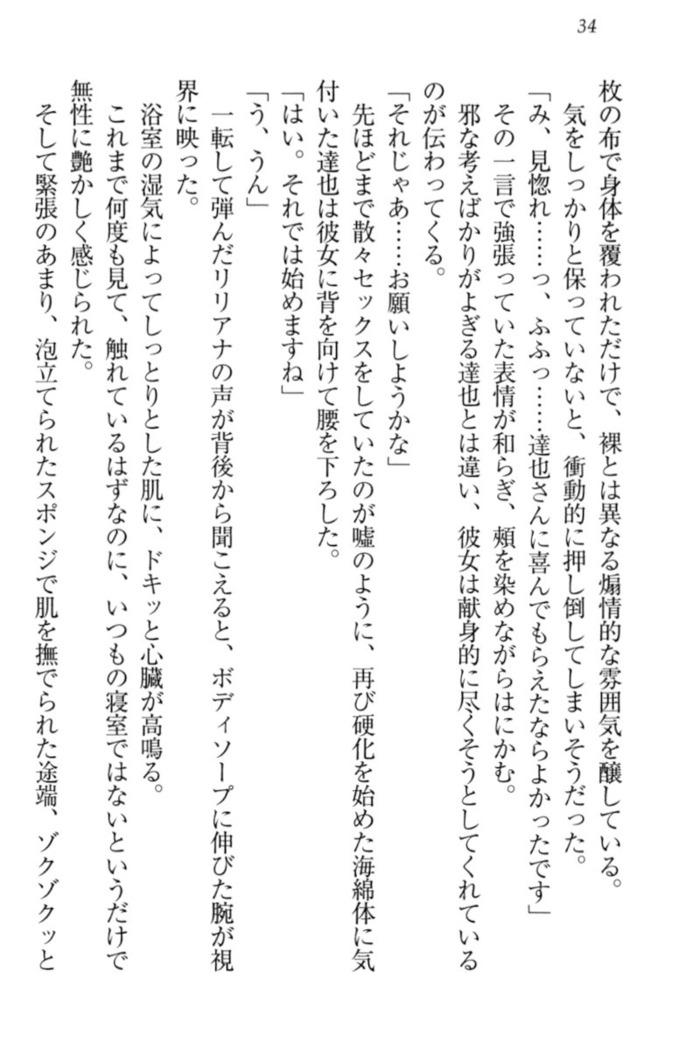 34
枚の布で身体を覆われただけで、裸とは異なる煽情的な雰囲気を醸している。
気をしっかりと保っていないと、衝動的に押し倒してしまいそうだった。
「み、見惚れ……っ、ふふっ……達也さんに喜んでもらえたならよかったです」
その一言で強張っていた表情が和らぎ、頬を染めながらはにかむ。
邪な考えばかりがよぎる達也とは違い、彼女は献身的に尽くそうとしてくれている
のが伝わってくる。
「それじゃあ……お願いしようかな」
先ほどまで散々セックスをしていたのが嘘のように、再び硬化を始めた海綿体に気
付いた達也は彼女に背を向けて腰を下ろした。
「はい。それでは始めますね」
「う、うん」
一転して弾んだリリアナの声が背後から聞こえると、ボディソープに伸びた腕が視
界に映った。
浴室の湿気によってしっとりとした肌に、ドキッと心臓が高鳴る。
これまで何度も見て、触れているはずなのに、いつもの寝室ではないというだけで
無性に艶かしく感じられた。
そして緊張のあまり、泡立てられたスポンジで肌を撫でられた途端、ゾクゾクッと